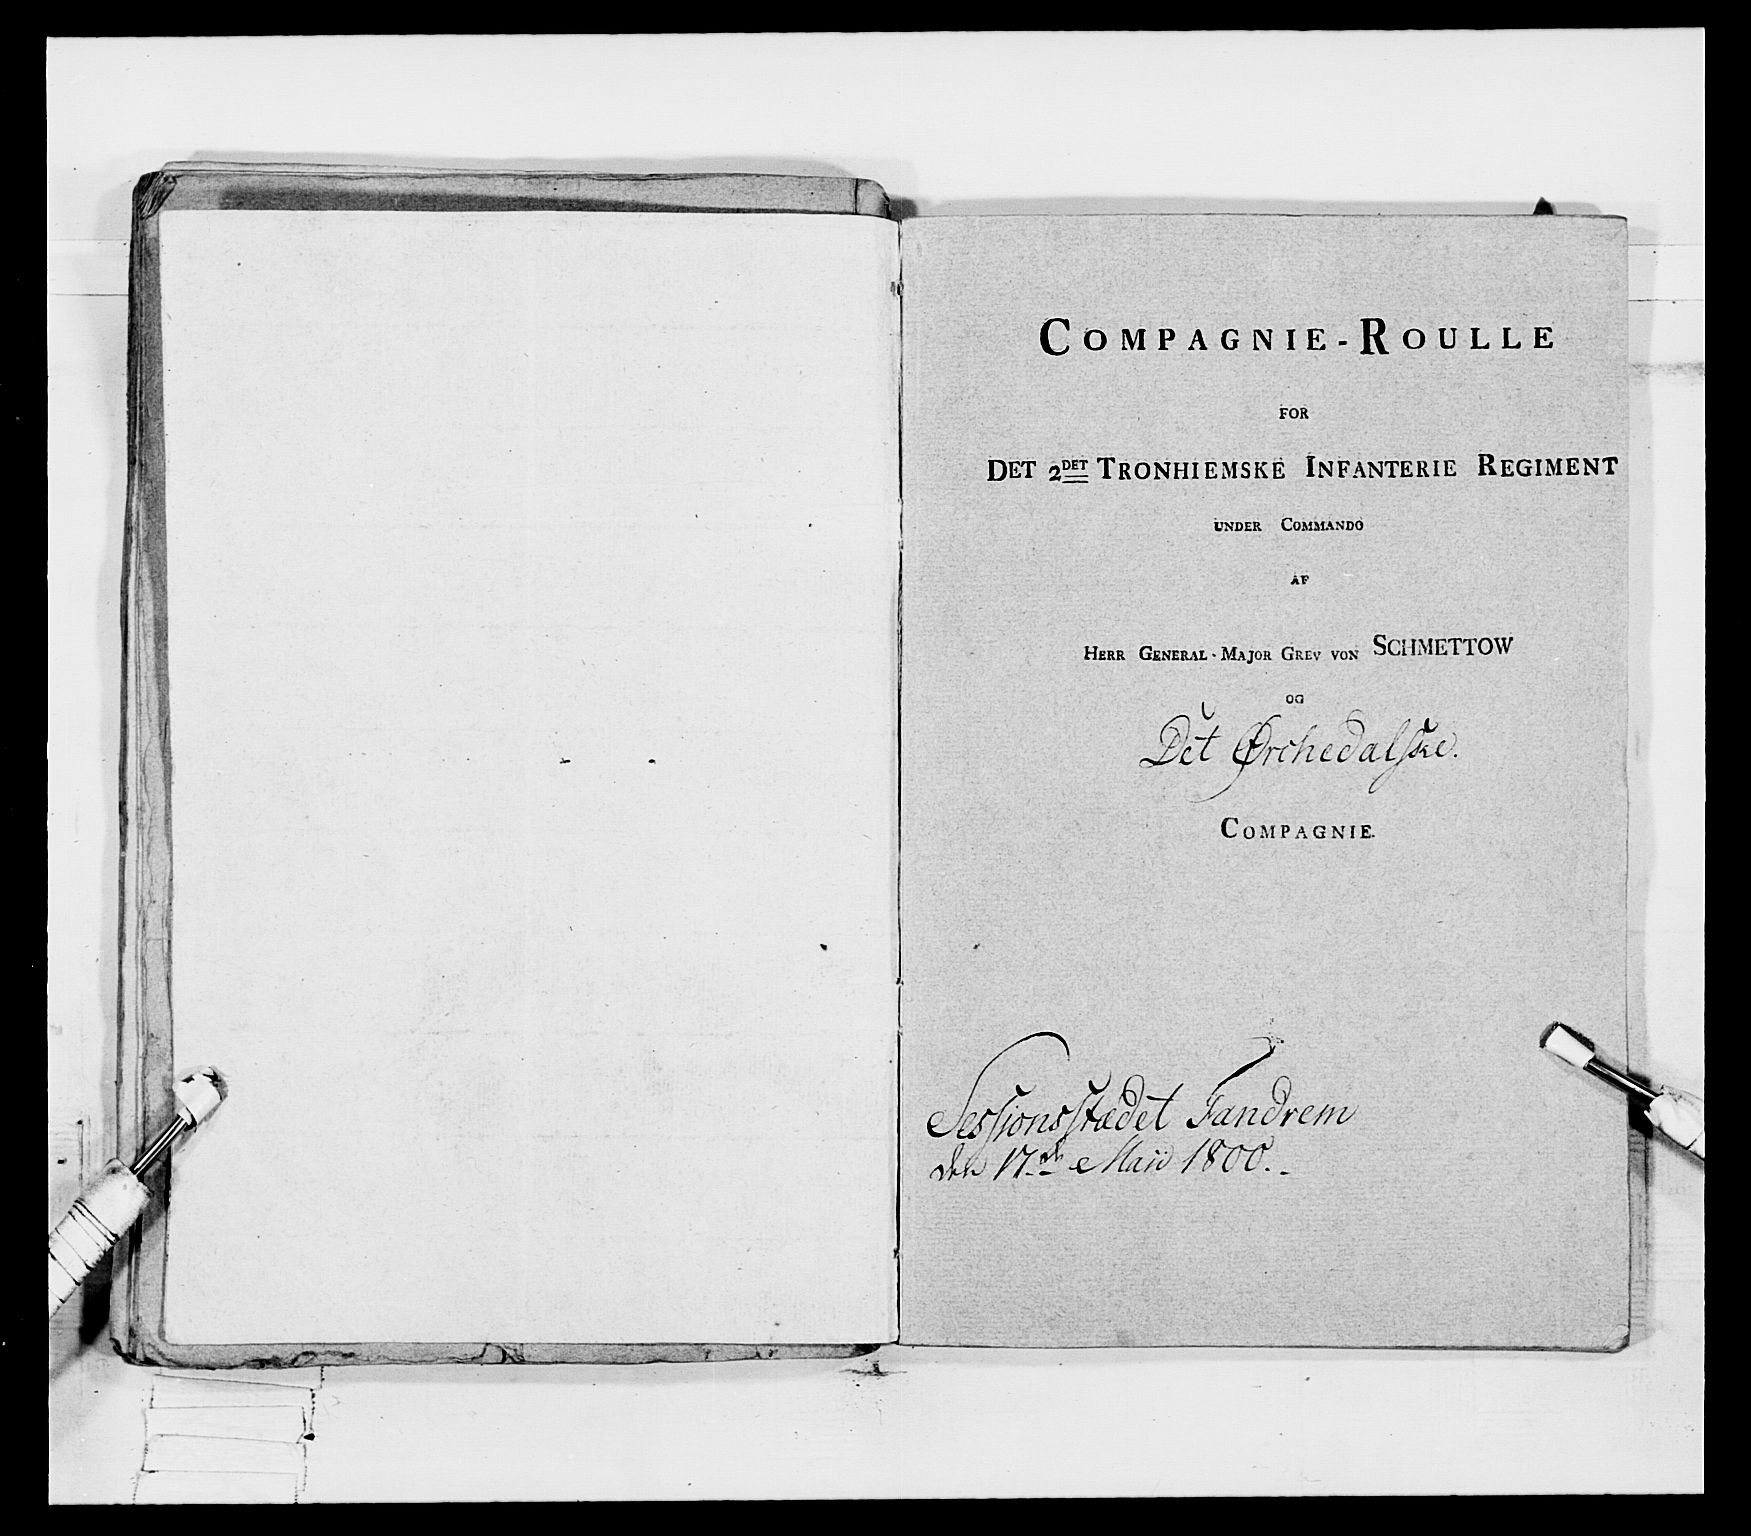 COMPAGNIE-ROULLE
FOR
DET 2DET TRONHIEMSKE INFANTERIE REGIMENT
UNDER COMMANDO
AF
HERR GENERAL-MAJOR GREV VON SCHMETTOW
OG
Det Ørchedalske.
COMPAGNIE.
Sessionsstædet Fandrem
den 17de Maii 1800.